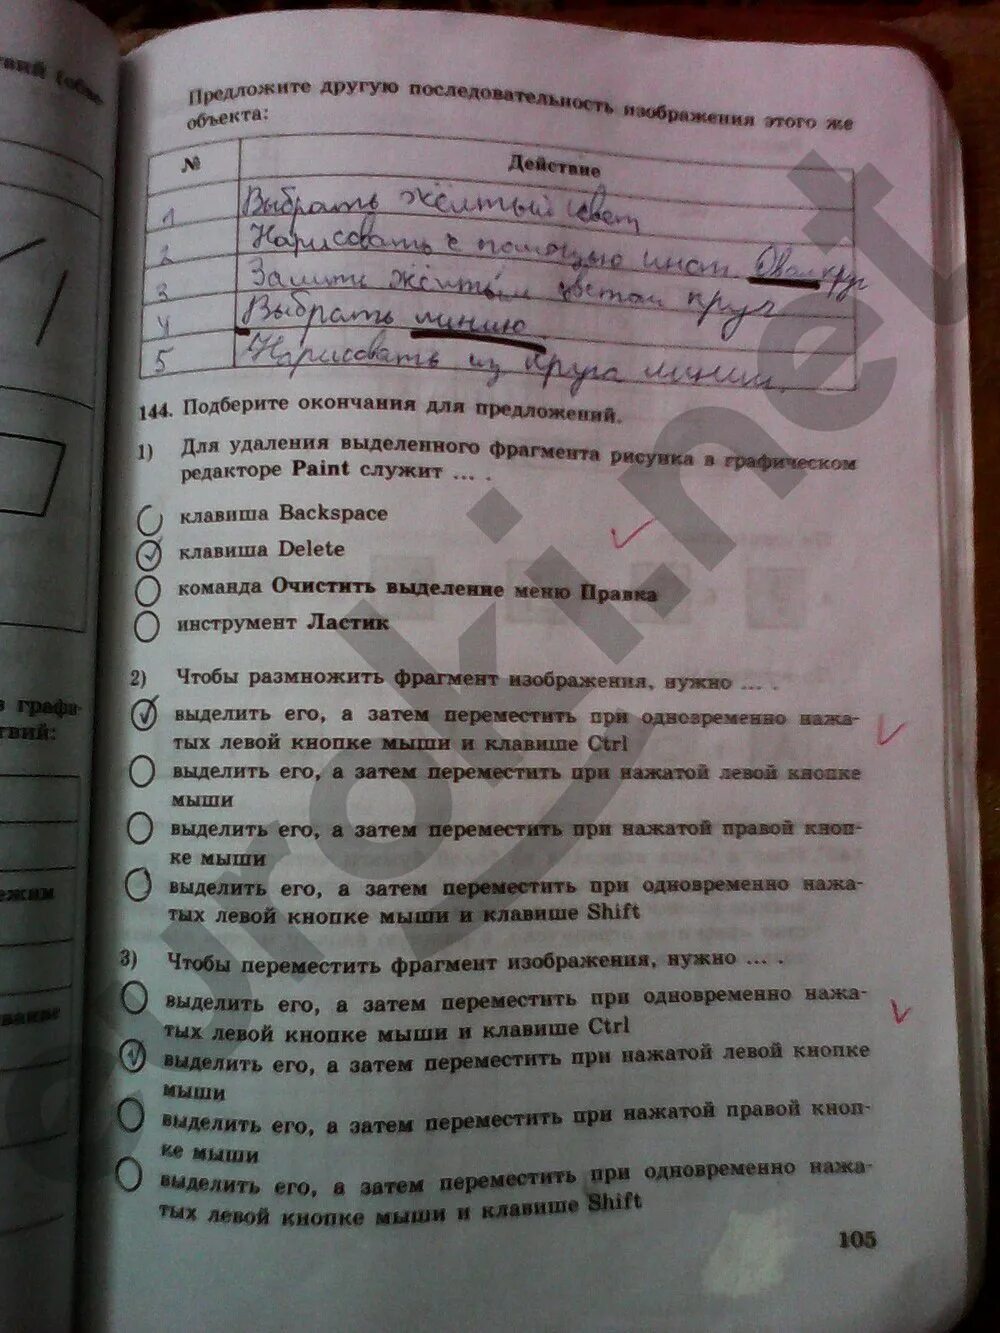 Предложите другую последовательность изображения этого же
объекта:
№ Действие
1 Выбрать жёлтый цвет
2 Нарисовать с помощью инст Овал круг
3 Залить жёлтым цветом круг
4 Выбрать линию
5 Нарисовать из круга линии
144. Подберите окончания для предложений.
1) Для удаления выделенного фрагмента рисунка в графическом
редакторе Paint служит ... .
клавиша Backspace
клавиша Delete
команда Очистить выделение меню Правка
инструмент Ластик
2) Чтобы размножить фрагмент изображения, нужно ... .
выделить его, а затем переместить при одновременно нажа-
тых левой кнопке мыши и клавише Ctrl
выделить его, а затем переместить при нажатой левой кнопке
мыши
выделить его, а затем переместить при нажатой правой кноп-
ке мыши
выделить его, а затем переместить при одновременно нажа-
тых левой кнопке мыши и клавише Shift
3) Чтобы переместить фрагмент изображения, нужно ... .
выделить его, а затем переместить при одновременно нажа-
тых левой кнопке мыши и клавише Ctrl
выделить его, а затем переместить при нажатой левой кнопке
мыши
выделить его, а затем переместить при нажатой правой кноп-
ке мыши
выделить его, а затем переместить при одновременно нажа-
тых левой кнопке мыши и клавише Shift
105
euroki.net